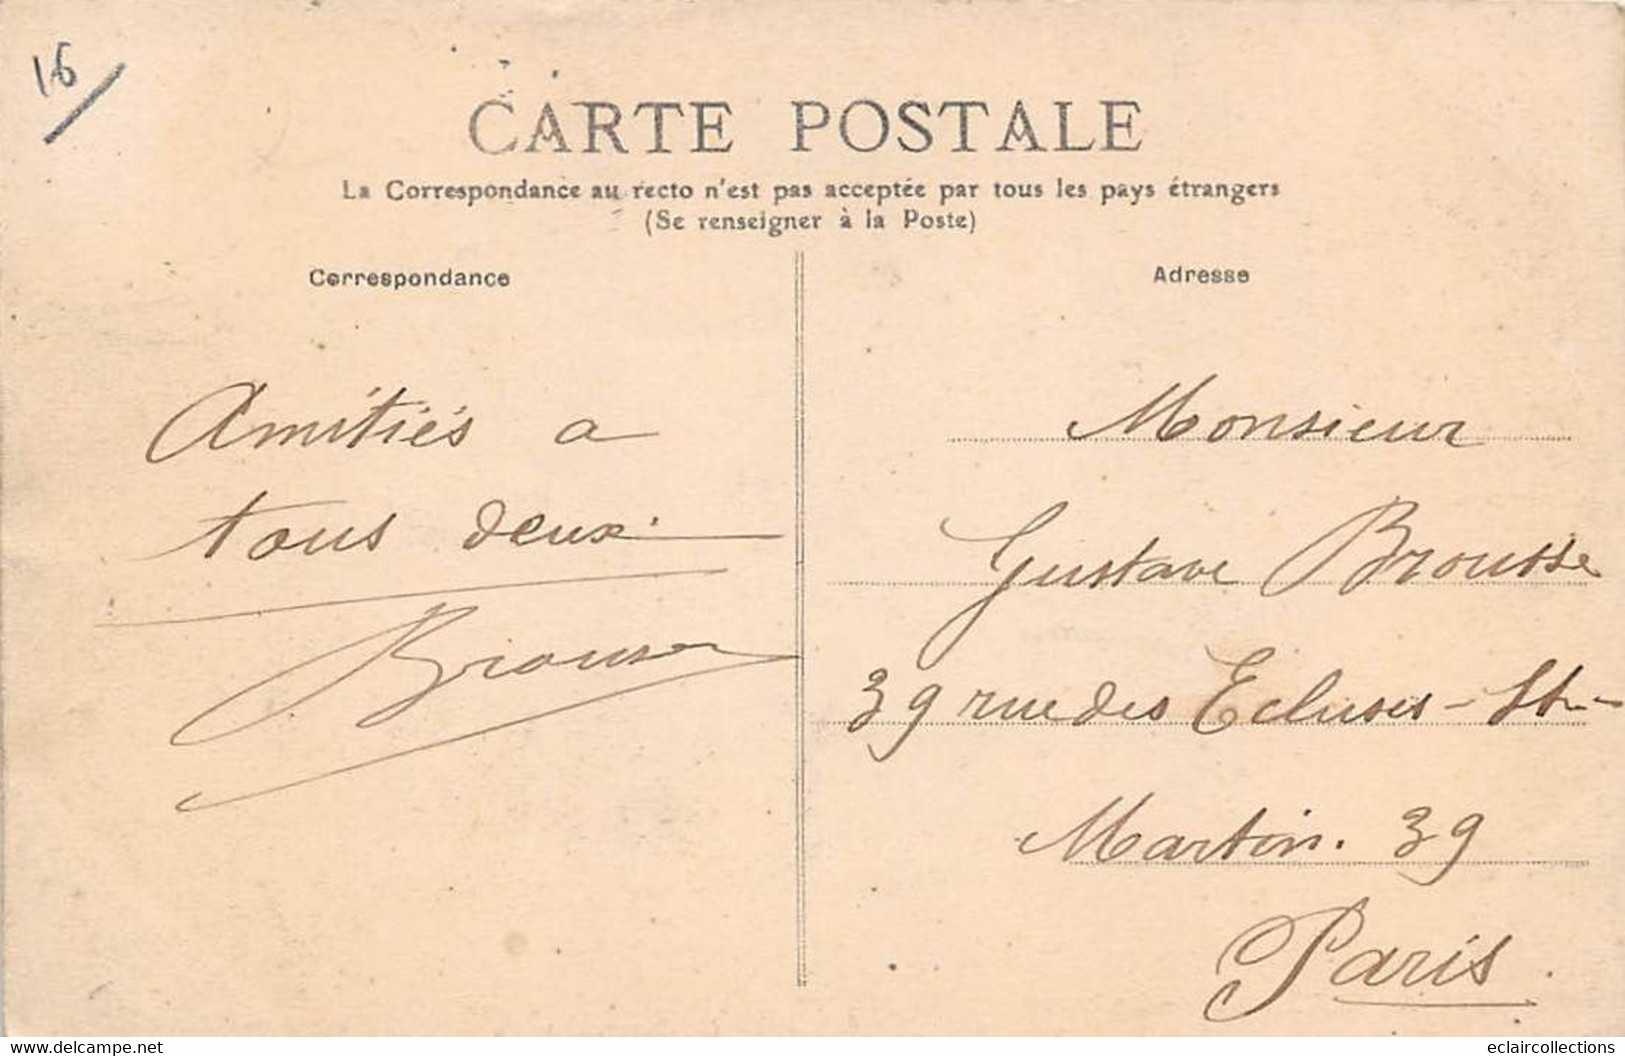 16
CARTE POSTALE
La Correspondance au recto n'est pas acceptée par tous les pays étrangers
(Se renseigner à la Poste)
Correspondance
Adresse
Amitiés a
tous deux.
Monsieur
Gustave Brousse
39 rue des Ecluses-St-
Martin. 39
Paris.
www.delcampe.net
eclaircollections